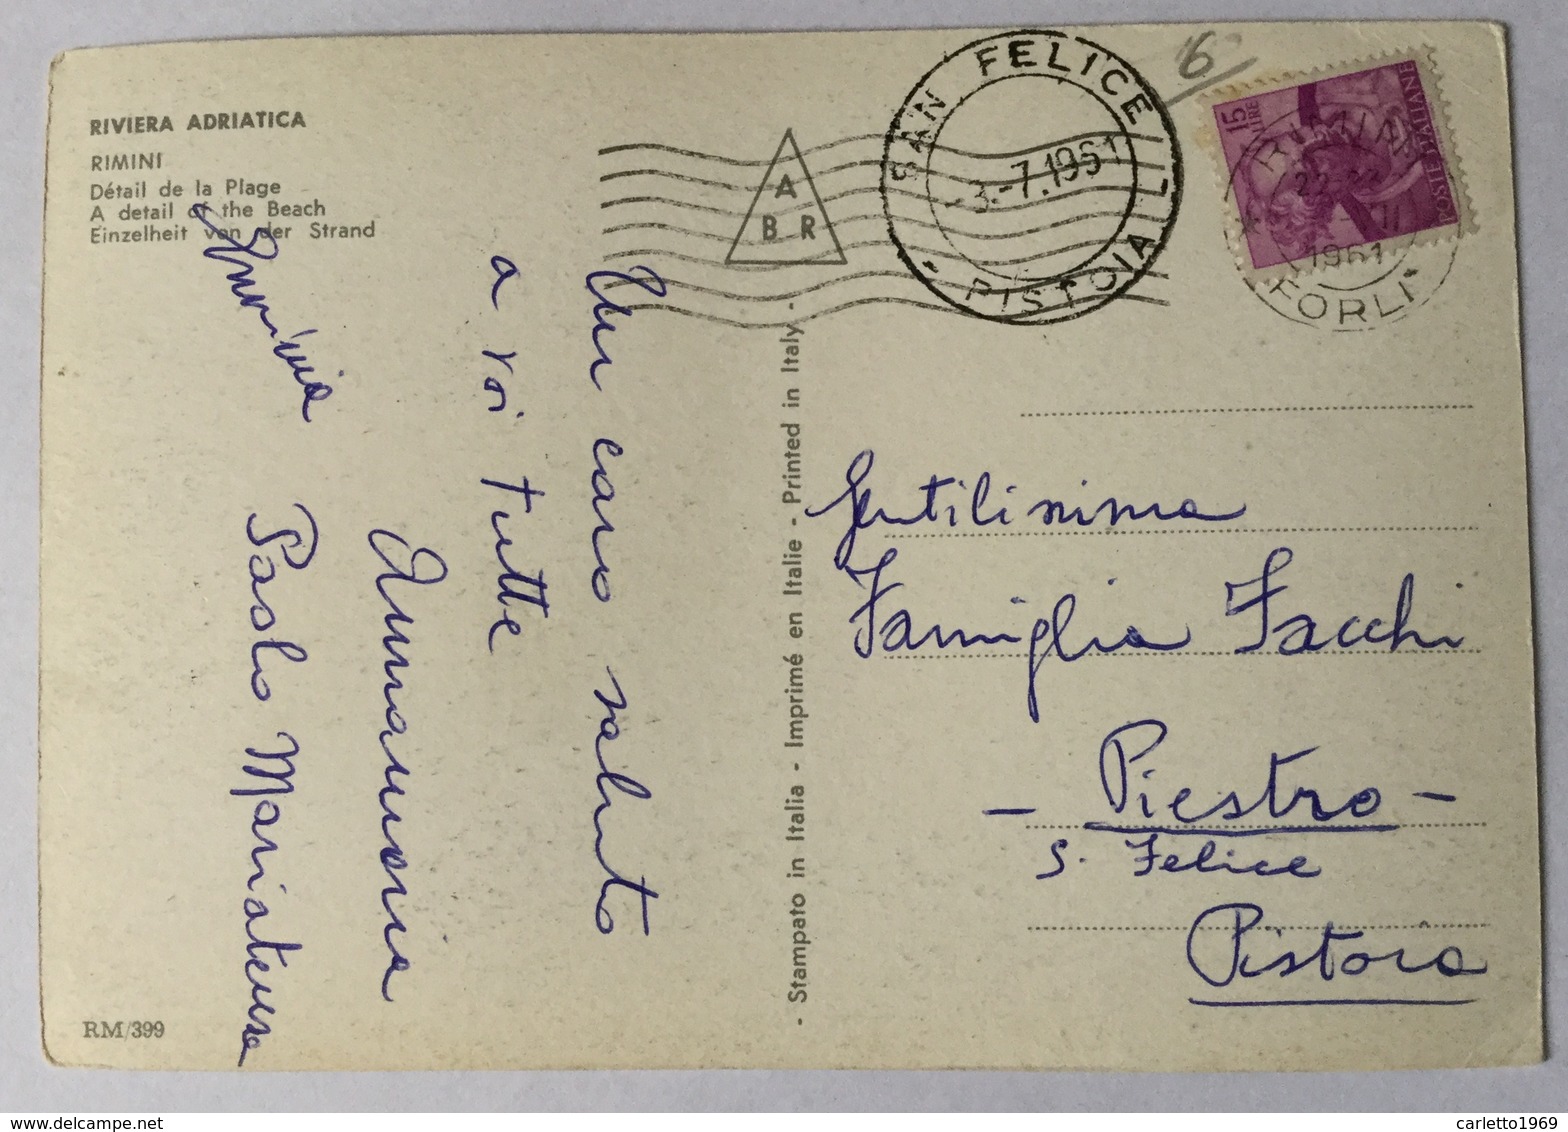 RIVIERA ADRIATICA
RIMINI
Détail de la Plage
A detail of the Beach
Einzelheit von der Strand
Un caro saluto
a voi tutte
Annamaria
Paolo Mariateresa
RM/399
- Stampato in Italia - Imprimé en Italie - Printed in Italy -
A
B R
SAN FELICE
3.-7.1961
- PISTOIA
6
15
LIRE
POSTE ITALIANE
RIMINI
1961
FORLI
Gentilissima
Famiglia Facchi
- Piestro -
S. Felice
Pistoia
www.delcampe.net
carletto1969